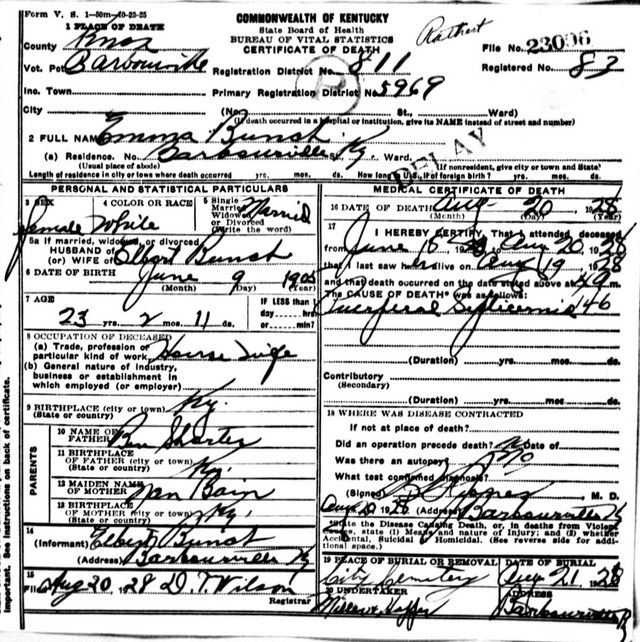 Form V. S. 1-50m-10-23-25
1 PLACE OF DEATH
COMMONWEALTH OF KENTUCKY
State Board of Health
BUREAU OF VITAL STATISTICS
CERTIFICATE OF DEATH
County Knox
File No. 23006
Vot. Pct. Barbourville
Registration District No. 811
Registered No. 83
Inc. Town
Primary Registration District No. 5969
City (No. St., Ward)
(If death occurred in a hospital or institution, give its NAME instead of street and number)
DELAY
2 FULL NAME Emma Bunch
(a) Residence. No. Barbourville Ky Ward.
(Usual place of abode) (If nonresident, give city or town and State)
Length of residence in city or town where death occurred yrs. mos. ds. How long in U.S., if of foreign birth? yrs. mos. ds.
PERSONAL AND STATISTICAL PARTICULARS
3 SEX Female
4 COLOR OR RACE White
5 Single Married Widowed or Divorced (Write the word) Married
5a If married, widowed, or divorced
HUSBAND of
(or) WIFE of Elbert Bunch
6 DATE OF BIRTH June 9 1905
(Month) (Day) (Year)
7 AGE
23 yrs. 2 mos. 11 ds.
IF LESS than
1 day hrs.
or min?
8 OCCUPATION OF DECEASED
(a) Trade, profession or
particular kind of work House Wife
(b) General nature of industry,
business or establishment in
which employed (or employer)
9 BIRTHPLACE (city or town) Ky.
(State or country)
PARENTS
10 NAME OF
FATHER Ben Sharter
11 BIRTHPLACE
OF FATHER (city or town) Ky.
(State or country)
12 MAIDEN NAME
OF MOTHER Nan Bain
13 BIRTHPLACE
OF MOTHER (city or town) Ky.
(State or country)
14
(Informant) Elbert Bunch
(Address) Barbourville Ky
15
Filed Aug 20 1928 D. T. Wilson
Registrar
MEDICAL CERTIFICATE OF DEATH
16 DATE OF DEATH Aug- 20 1928
(Month) (Day) (Year)
17
I HEREBY CERTIFY, That I attended deceased
from June 15 1928 to Aug 20 1928
that I last saw her alive on Aug 19 1928
and that death occurred on the date stated above at m.
The CAUSE OF DEATH* was as follows:
Puerperal Septicemia 146
(Duration) yrs. mos. ds.
Contributory
(Secondary)
(Duration) yrs. mos. ds.
18 WHERE WAS DISEASE CONTRACTED
If not at place of death?
Did an operation precede death? No Date of
Was there an autopsy? No
What test confirmed diagnosis?
(Signed) M. D.
Aug 20 1928 (Address) Barbourville Ky
*State the Disease Causing Death, or, in deaths from Violent
Causes, state (1) Means and nature of Injury; and (2) whether
Accidental, Suicidal or Homicidal. (See reverse side for addi-
tional space.)
19 PLACE OF BURIAL OR REMOVAL
City Cemetery
DATE OF BURIAL
Aug 21 1928
20 UNDERTAKER
Barbourville
important. See instructions on back of certificate.